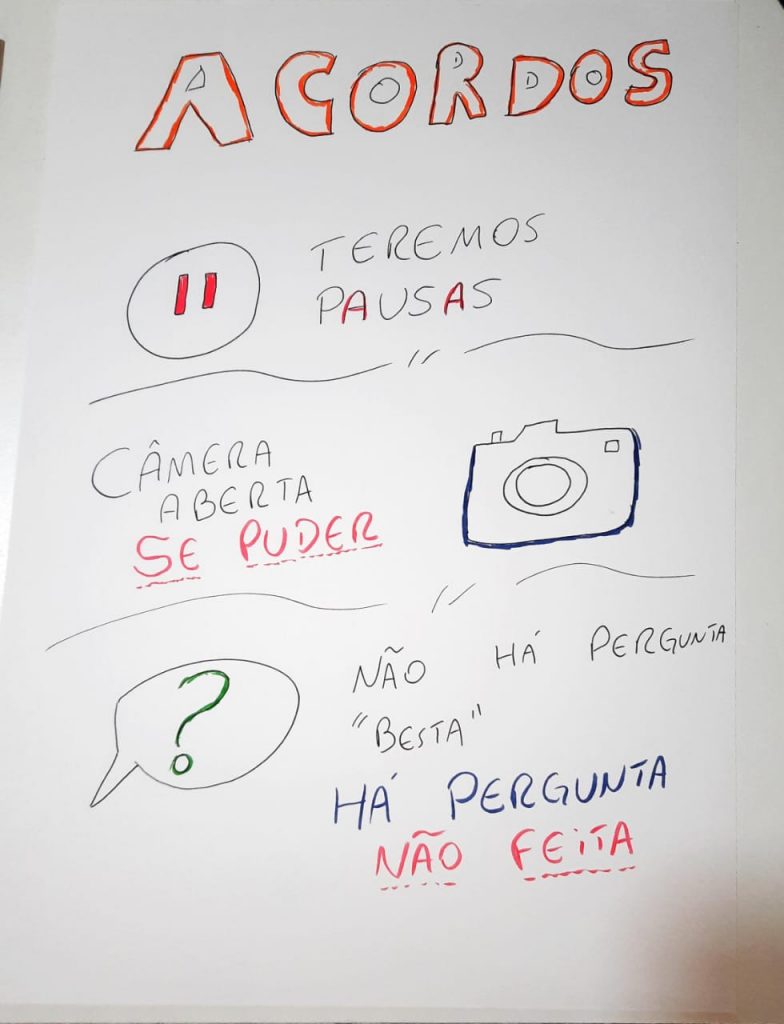 ACORDOS
TEREMOS
PAUSAS
CÂMERA
ABERTA
SE PUDER
NÃO HÁ PERGUNTA
"BESTA"
HÁ PERGUNTA
NÃO FEITA